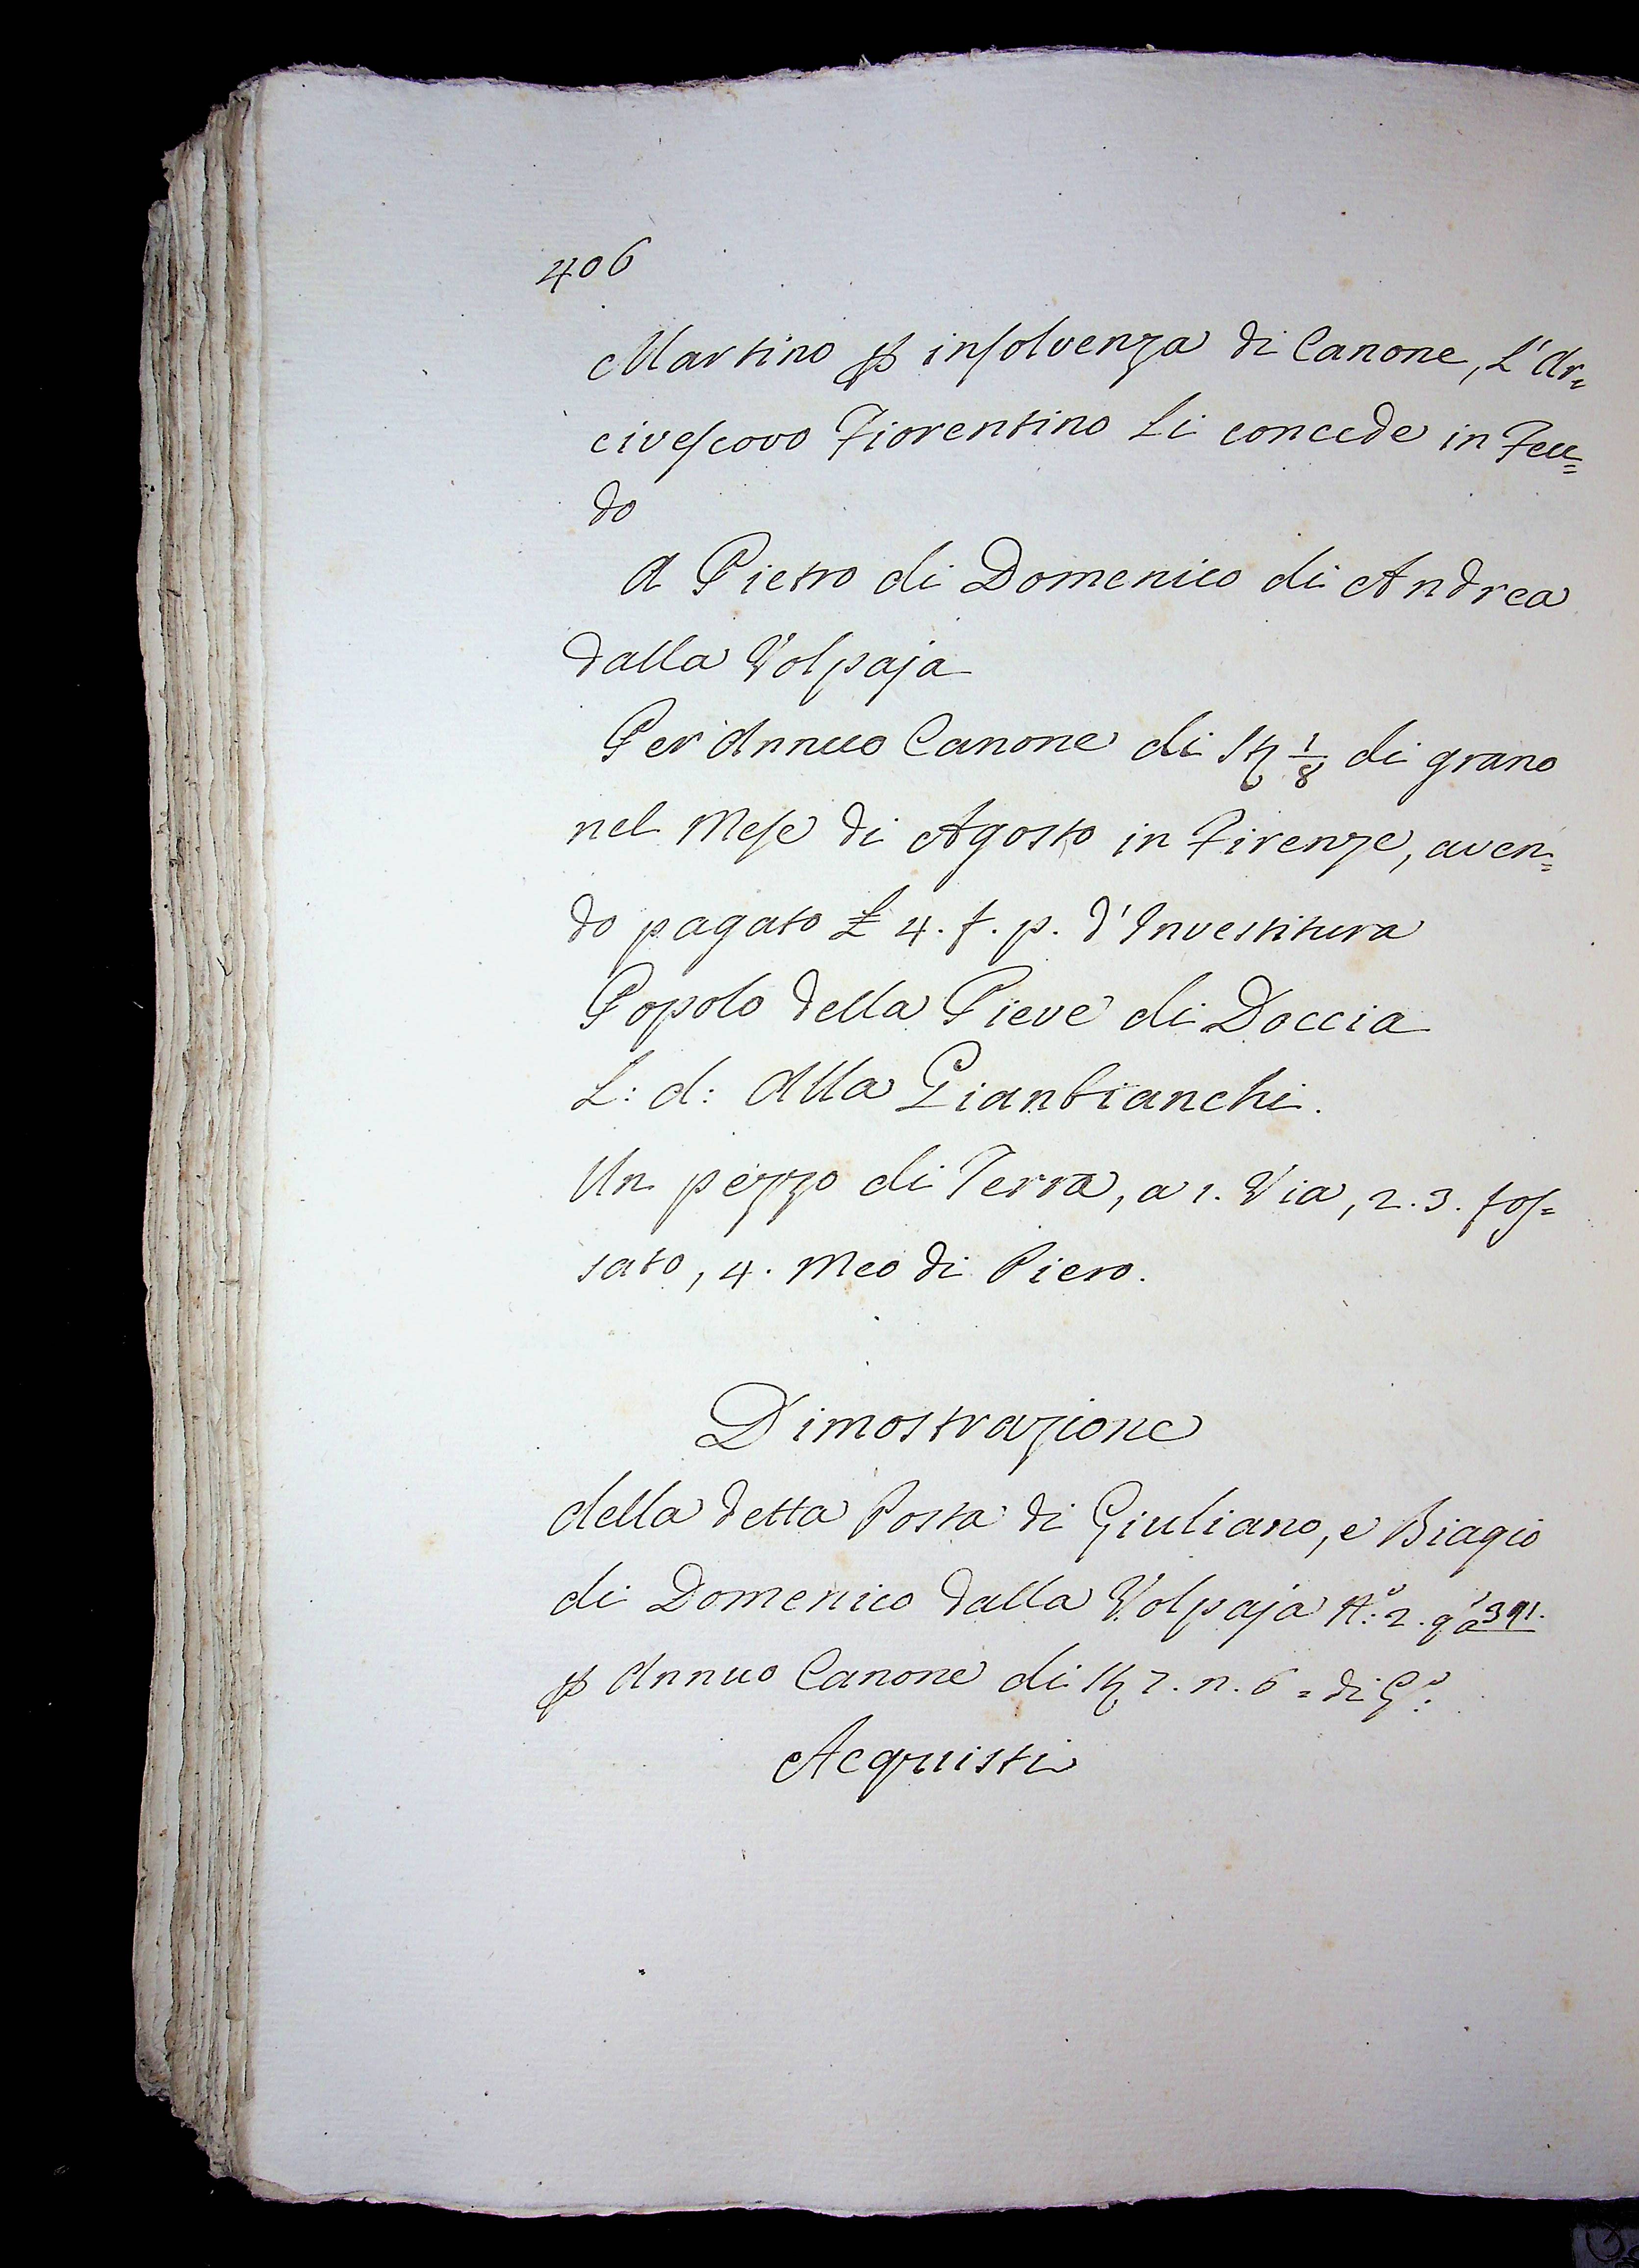 406
Martino ꝑ insolvenza di Canone, L'Ar=
civescovo Fiorentino Li concede in Feu=
do
A Pietro di Domenico di Andrea
dalla Volpaja
Per Annuo Canone di St 1/8 di grano
nel Mese di Agosto in Firenze, aven=
do pagato £ 4. f. p. d'Investitura
Popolo della Pieve di Doccia
L: d: Alla Gianbianchi.
Un pezzo di Terra, a 1. Via, 2. 3. fos=
sato, 4. Meo di Piero.
Dimostrazione
della detta Posta di Giuliano, e Biagio
di Domenico dalla Volpaja N.º 2. 391.
ꝑ Annuo Canone di St 7. n. 6 = di G.º
Acquisti